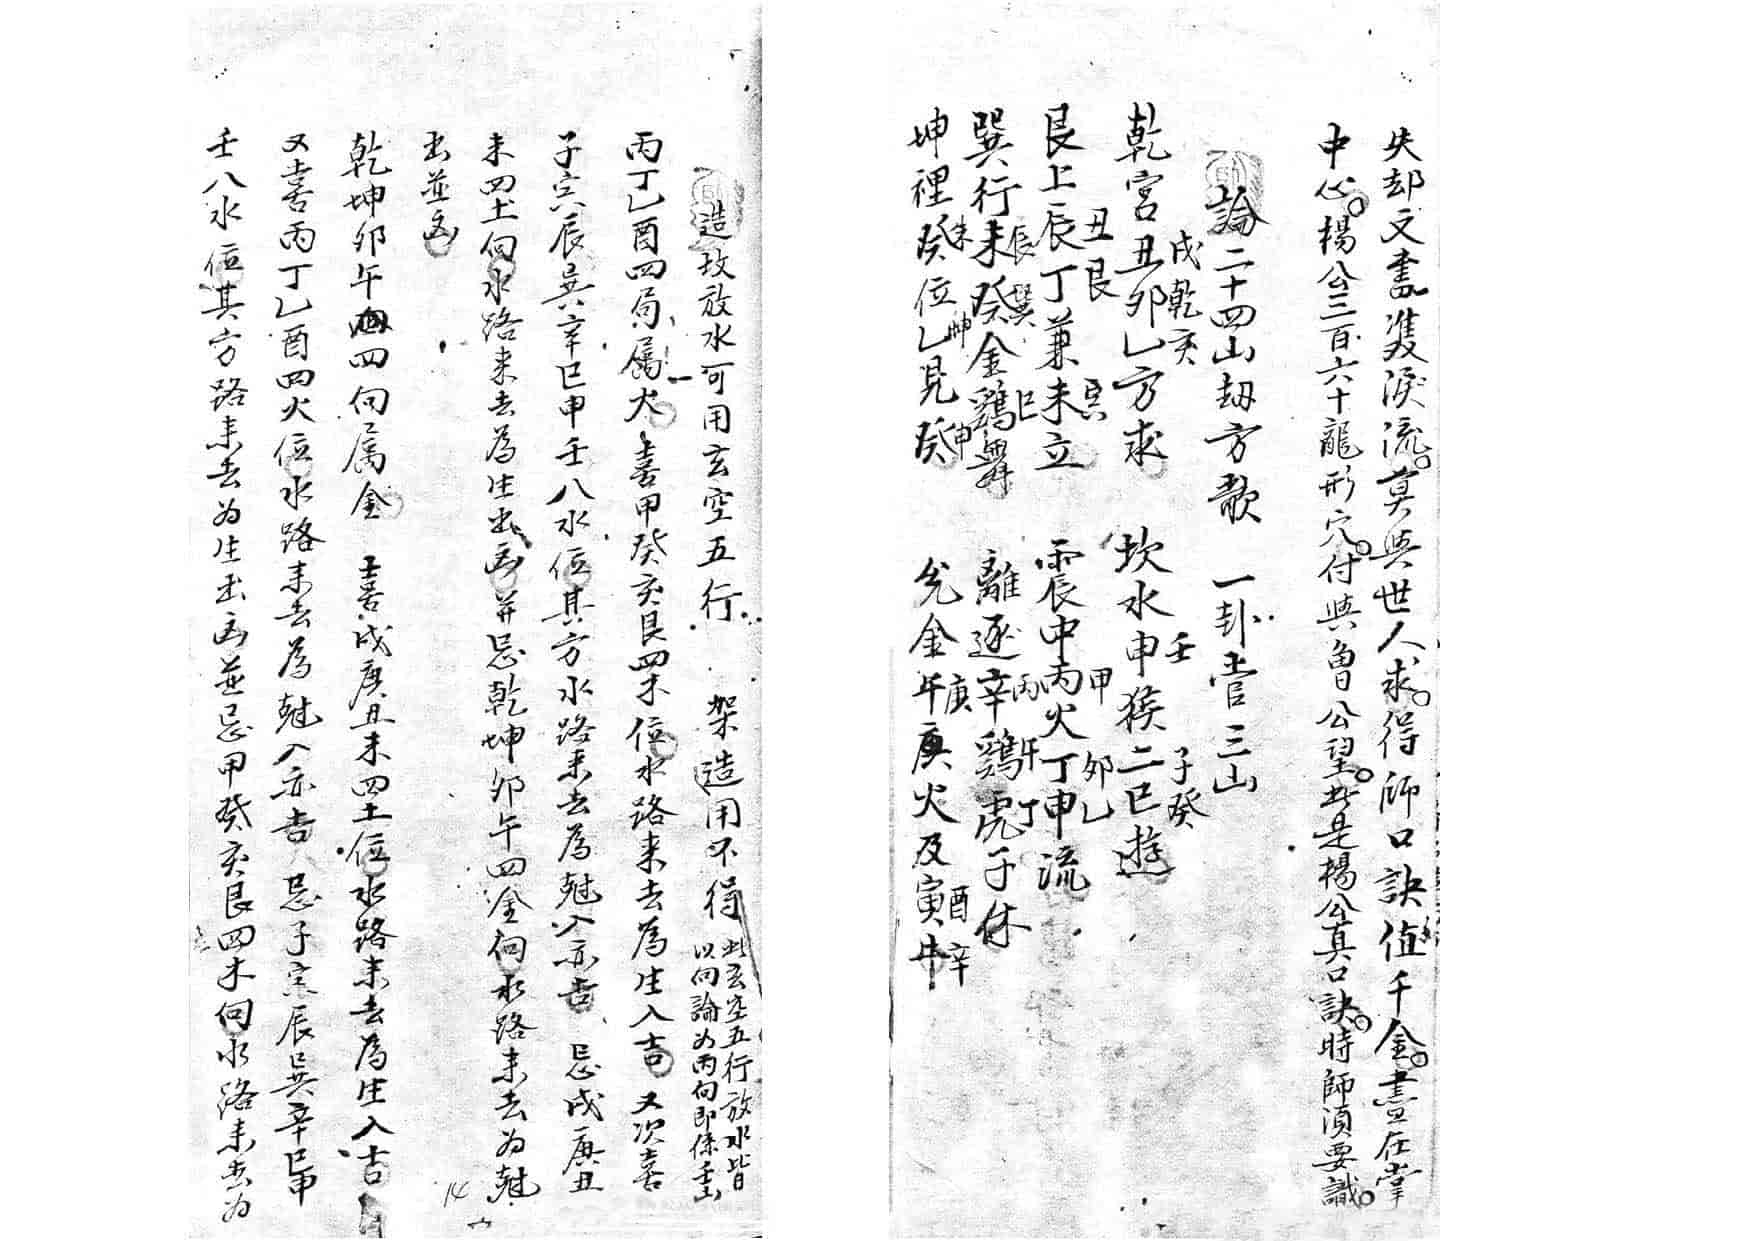 失却文書淚流莫与世人求得師口訣值千金盡在掌
中心楊公三百六十龍形穴付与魯公望此是楊公真口訣時師須要識
論二十四山劫方歌 一卦管三山
戌乾亥 壬子癸
乾宮丑卯乙方求 坎水申猴二巳遊
丑艮寅 甲卯乙
艮上辰丁兼未立 震中丙火丁申流
辰巽巳 丙午丁
巽行未癸金鷄舞 離逐辛鷄虎子休
未坤申 庚酉辛
坤裡癸位乙見癸 兌金午庚火及寅牛
造放水可用玄空五行 架造用不得 此玄空五行放水皆
以向論如丙向即係壬山
丙丁乙酉四局属火 喜甲癸亥艮四木位水路来去為生入吉 又次喜
子寅辰巽辛巳申壬八水位其方水路来去為尅入亦吉 忌戌庚丑
未四土向水路来去為生出凶并忌乾坤卯午四金向水路来去为尅
出並凶
乾坤卯午四向属金 喜戌庚丑未四土位水路来去為生入吉
又喜丙丁乙酉四火位水路来去為尅入亦吉 忌子寅辰巽辛巳申
壬八水位其方路来去为生出凶並忌甲癸亥艮四木向水路来去为
14